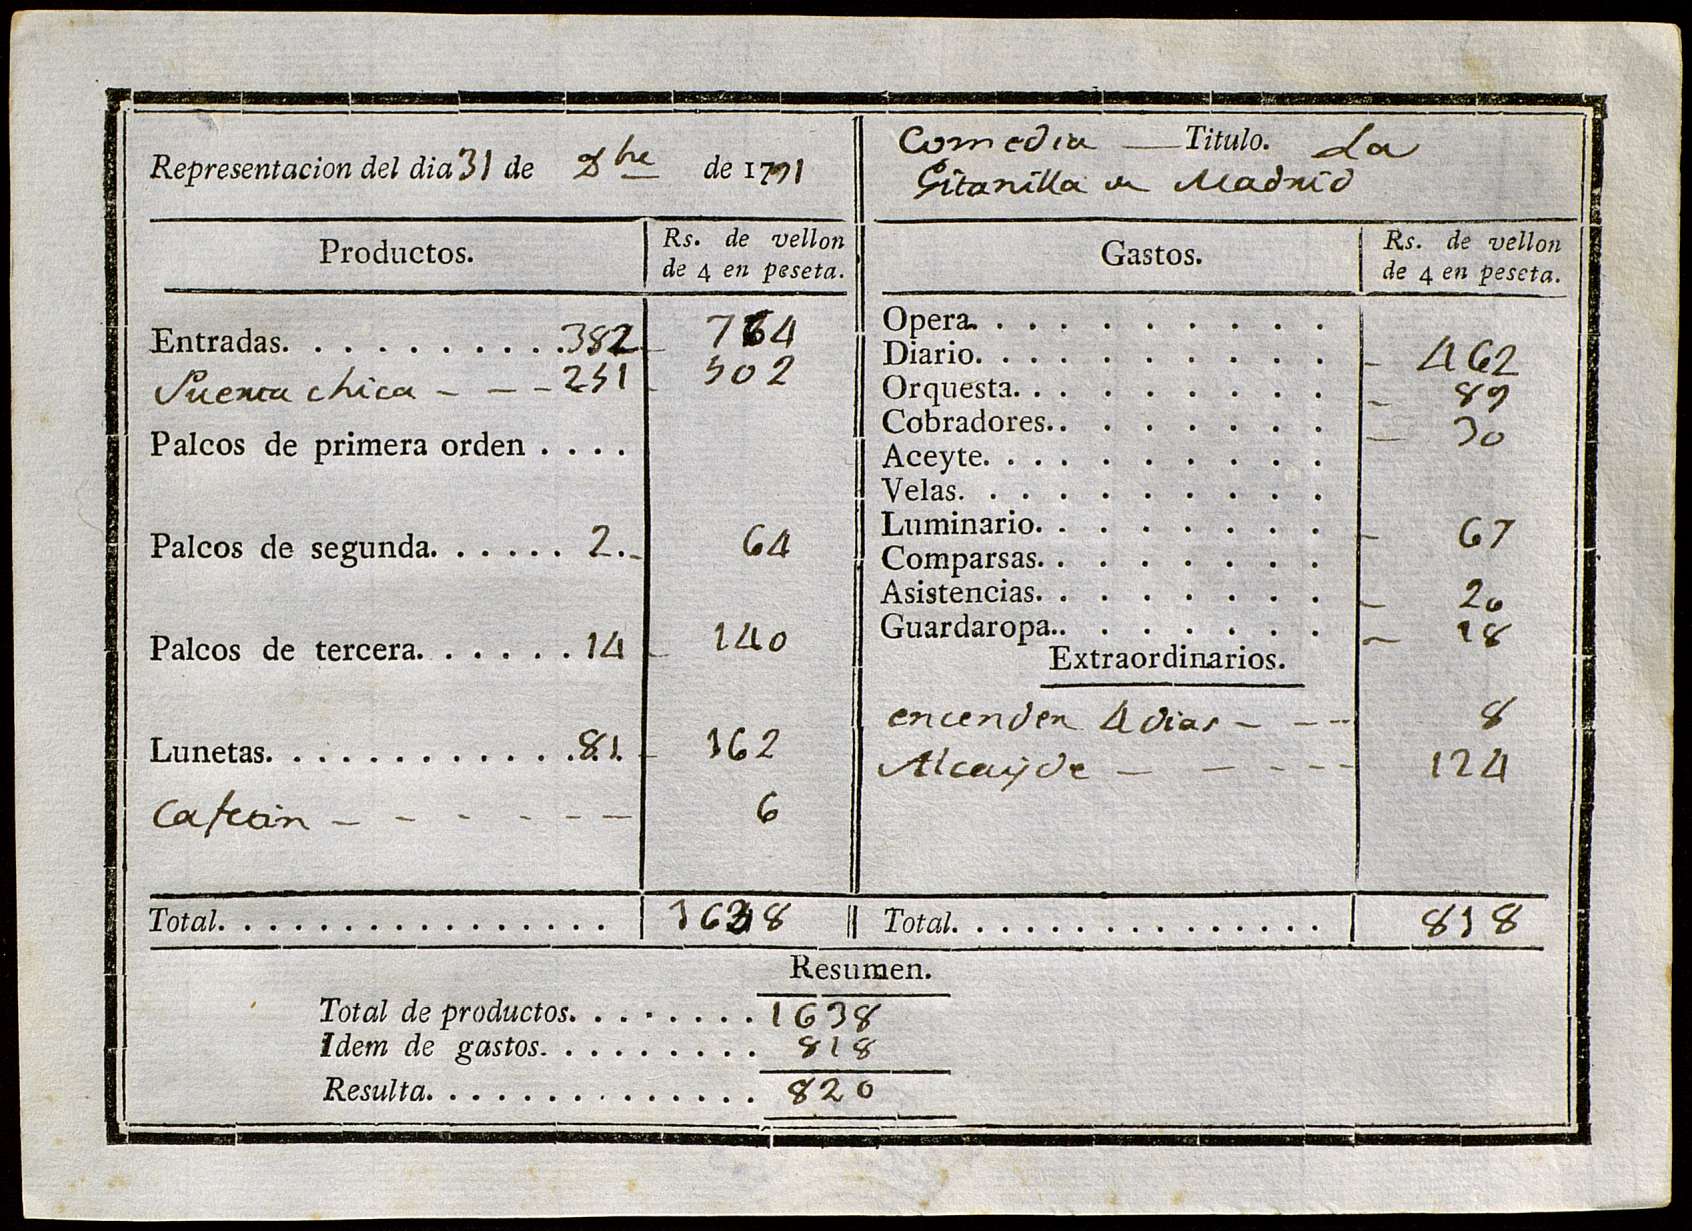 Representacion del dia 31 de 8bre de 1791
Comedia — Titulo. La
Gitanilla de Madrid
Productos.
Rs. de vellon
de 4 en peseta.
Entradas. . . . . . . . . . .382 764
Puerta chica - - - 251 - 502
Palcos de primera orden . . . .
Palcos de segunda. . . . . . 2. - 64
Palcos de tercera. . . . . . 14 - 140
Lunetas. . . . . . . . . . . .81. - 162
Cafetin - - - - - - - 6
Total. . . . . . . . . . . . . . . . 1638
Gastos.
Rs. de vellon
de 4 en peseta.
Opera. . . . . . . . . .
Diario. . . . . . . . . . - 462
Orquesta. . . . . . . . . - 89
Cobradores. . . . . . . . - 30
Aceyte. . . . . . . . . .
Velas. . . . . . . . . .
Luminario. . . . . . . . - 67
Comparsas. . . . . . . .
Asistencias. . . . . . . . - 20
Guardaropa. . . . . . . . - 18
Extraordinarios.
encender 4 dias - - -- 8
Alcayde - - - - -- 124
Total. . . . . . . . . . . . . . . . 818
Resumen.
Total de productos. . . . . . . . 1638
Idem de gastos. . . . . . . . . 818
Resulta. . . . . . . . . . . . . 820